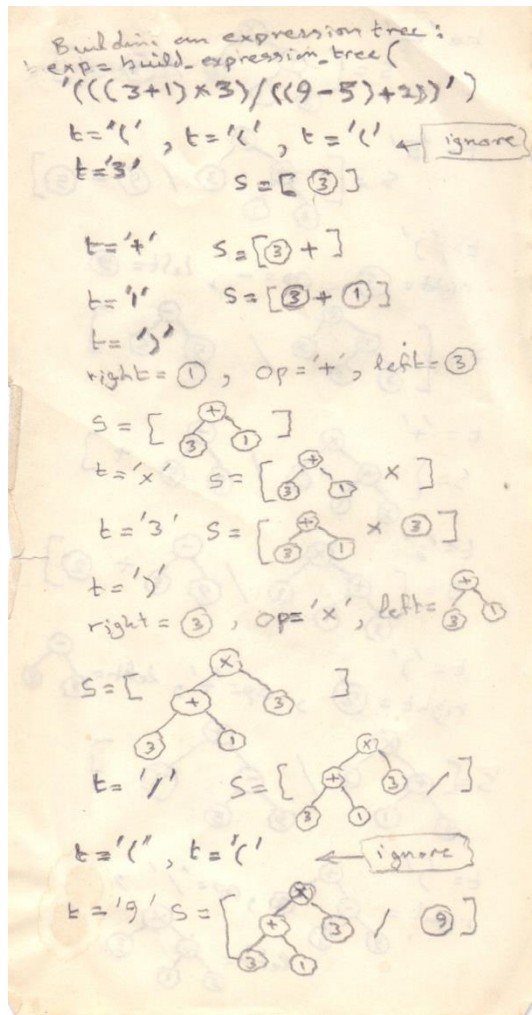 Building an expression tree:
exp = build_expression_tree(
'(((3+1)×3)/((9-5)+2))')
t='(' , t='(' , t='(' ← ignore
t='3' S=[ 3 ]
t='+' S=[ 3 + ]
t='1' S=[ 3 + 1 ]
t=')'
right= 1 , op='+', left= 3
S=[ + 3 1 ]
t='x' S=[ + 3 1 x ]
t='3' S=[ + 3 1 x 3 ]
t=')'
right= 3 , op='x', left= + 3 1
S=[ x + 3 3 1 ]
t='/' S=[ x + 3 3 1 / ]
t='(' , t='(' ← ignore
t='9' S=[ x + 3 3 1 / 9 ]